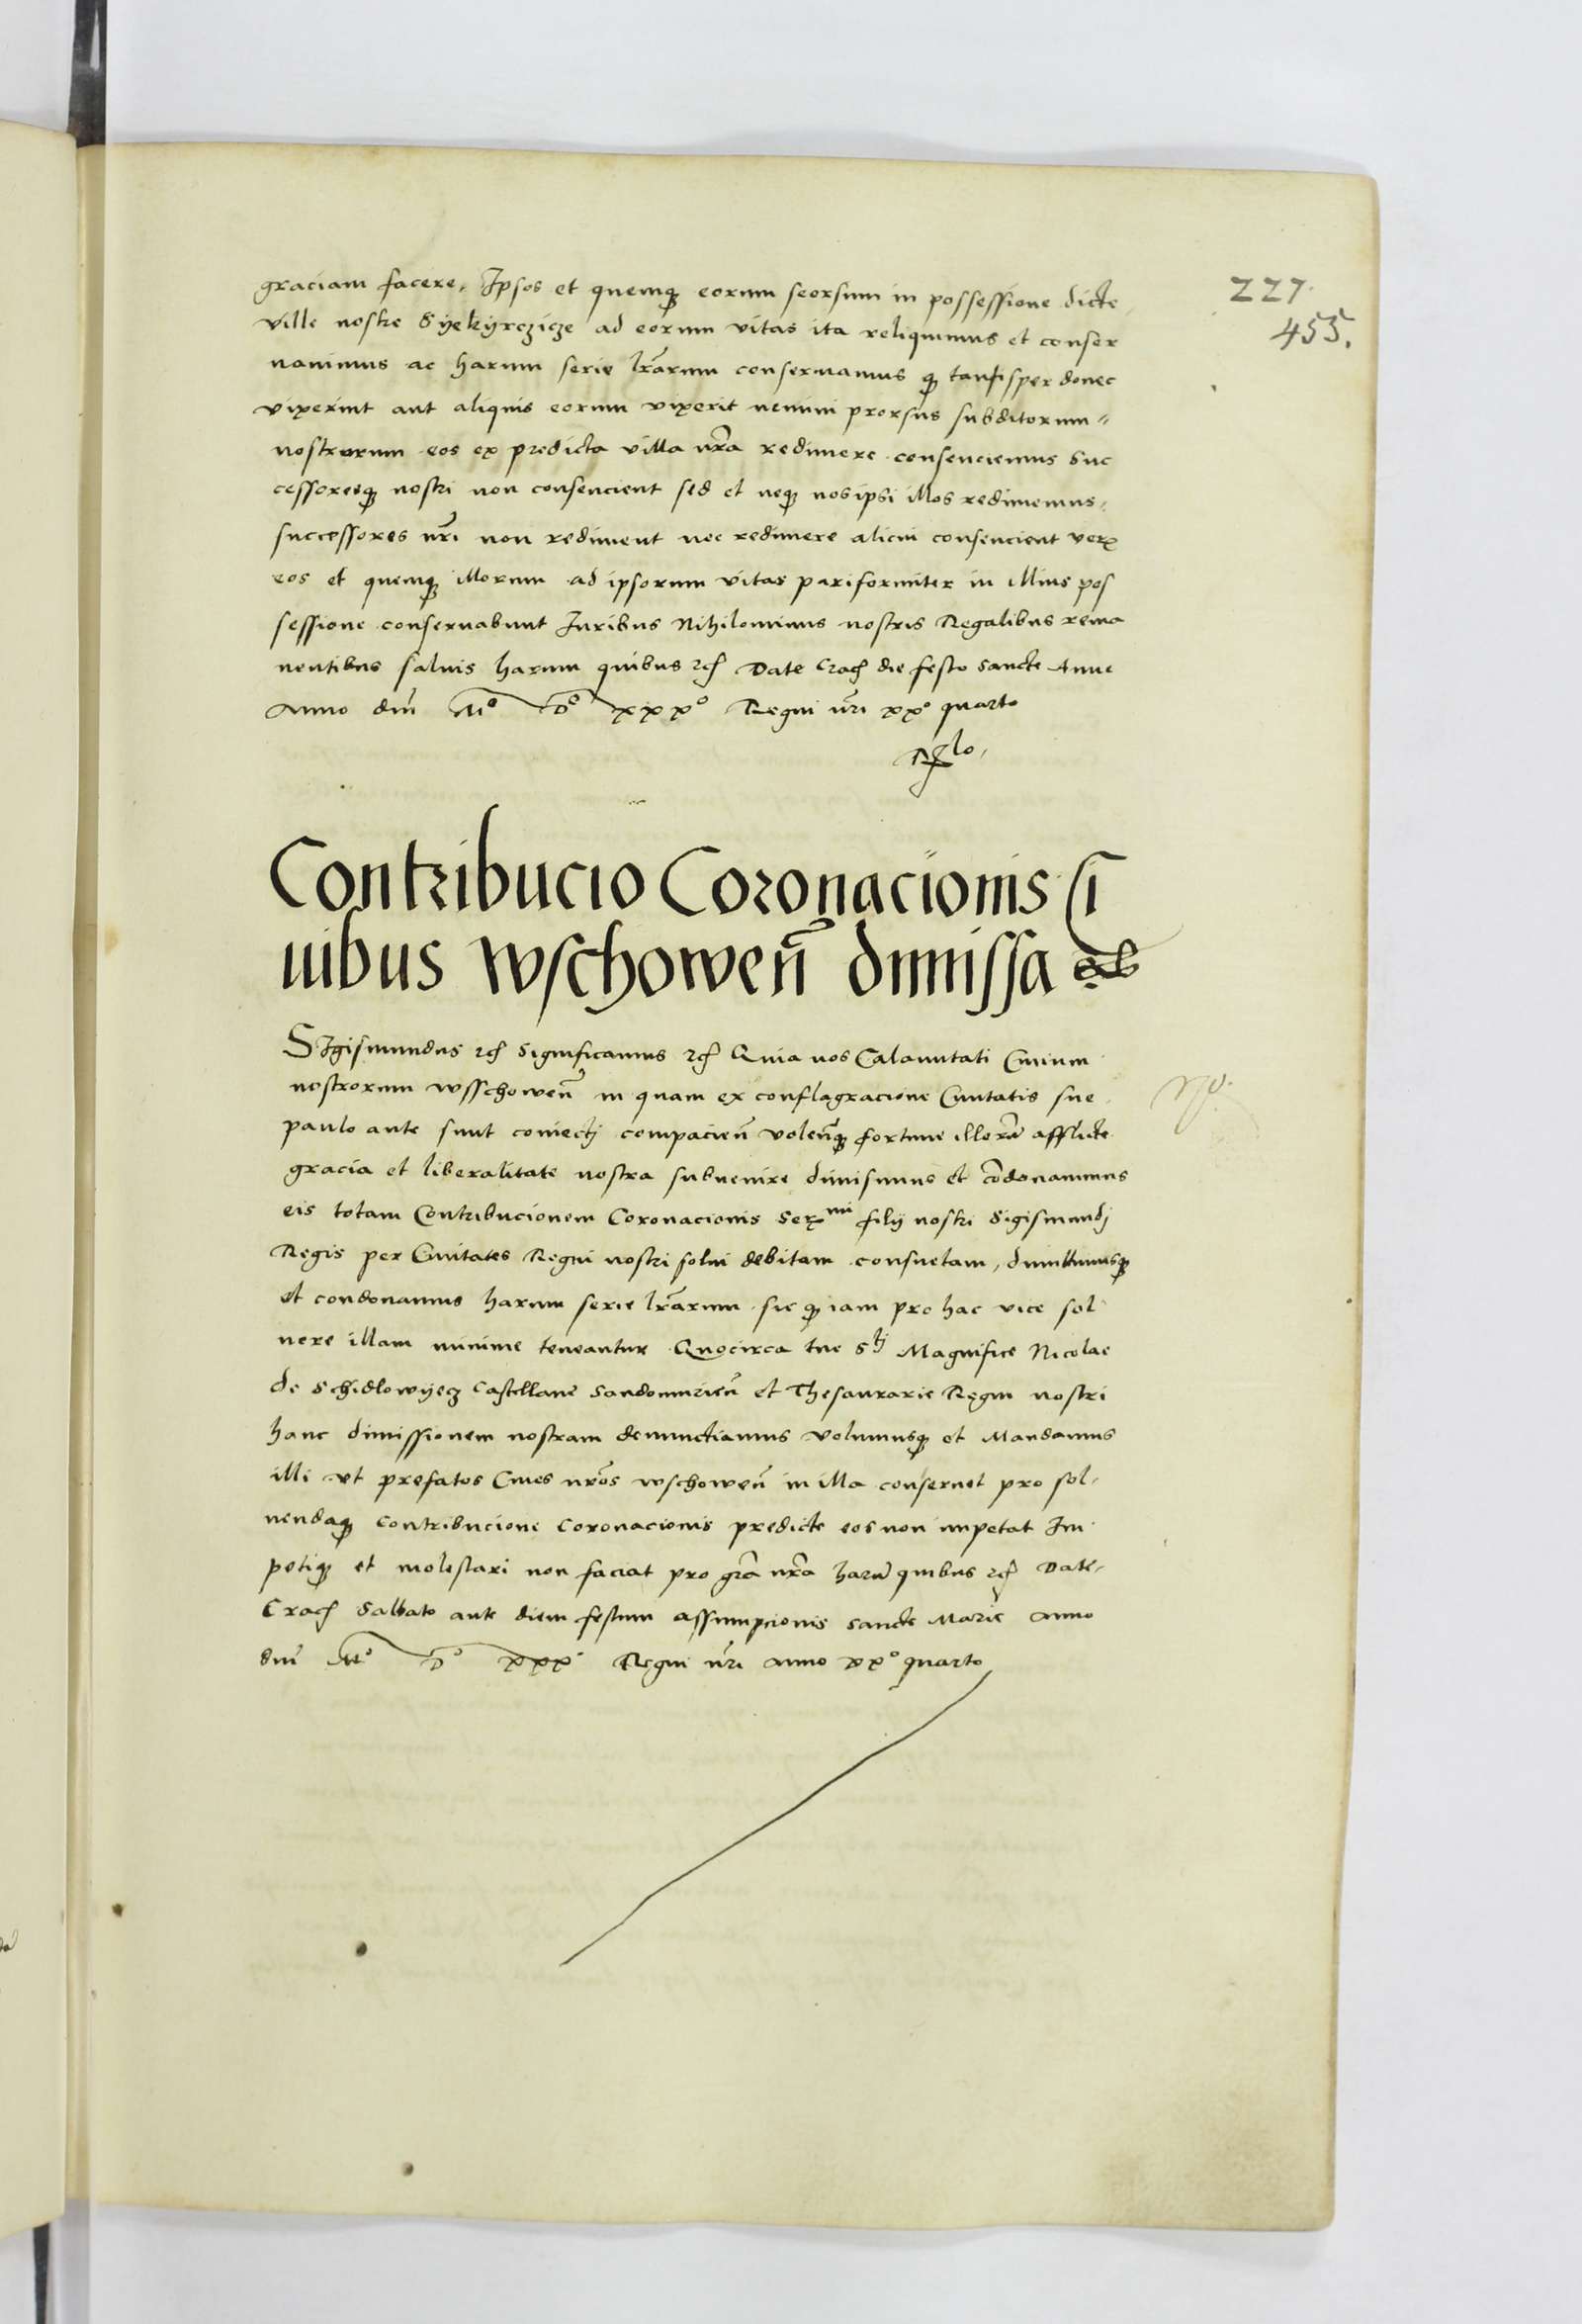 227.
455.
graciam facere, Ipsos et quemqꝫ eorum seorsum in possessione dicte
ville nostre Syekyrczicze ad eorum vitas ita reliquimus et conser
uauimus ac harum serie lr̃arum conseruamus qꝫ tantisper donec
vixerint aut aliquis eorum vixerit nemini prorsus subditorum
nostrorum eos ex predicta villa nr̃a redimere consenciemus Suc
cessoresqꝫ nostri non consencient sed et neqꝫ nosipsi illos redimemus,
successores nr̃i non rediment nec redimere alicui consencient verꝫ
eos et quemqꝫ illorum ad ipsorum vitas pariformiter in illius pos
sessione conseruabunt Iuribus Nihilominus nostris Regalibus rema
nentibus saluis harum quibus rc̃ Date Crac̃ die festo Sancte Anne
Anno dm̃ Mº Dº xxxº Regni nr̃i xxº quarto
Contribucio Coronacionis Ci
uibus wschoweñ dimissa
SIgismundus rc̃ Significamus rc̃ Quia nos Calamitati Ciuium
nostrorum wsschoweñ in quam ex conflagracione Ciuitatis sue
paulo ante sunt coniectj compacieñ voleñqꝫ fortune illorũ afflicte
gracia et liberalitate nostra subuenire dimisimus et cõdonauimus
eis totam Contribucionem Coronacionis Serᵐⁱ filij nostri Sigismundj
Regis per Ciuitates Regni nostri solui debitam consuetam, dimittimusqꝫ
et condonamus harum serie lr̃arum sic qꝫ iam pro hac vice sol
uere illam minime teneantur Quocirca tue Stj Magnifice Nicolae
de Schidlowyecz Castellane Sandomirieñ et Thesaurarie Regni nostri
hanc dimissionem nostram denunctiamus volumusqꝫ et Mandamus
illi vt prefatos Ciues nr̃os wschoweñ in illa conseruet pro sol
uendaqꝫ contribucione Coronacionis predicte eos non impetat Im
petiqꝫ et molestari non faciat pro gr̃a nr̃a harũ quibus rc̃ Date
Crac̃ Sabbato ante diem festum assumpcionis Sancte Marie Anno
dm̃ Mº Dº xxx Regni nr̃i anno xxº quarto